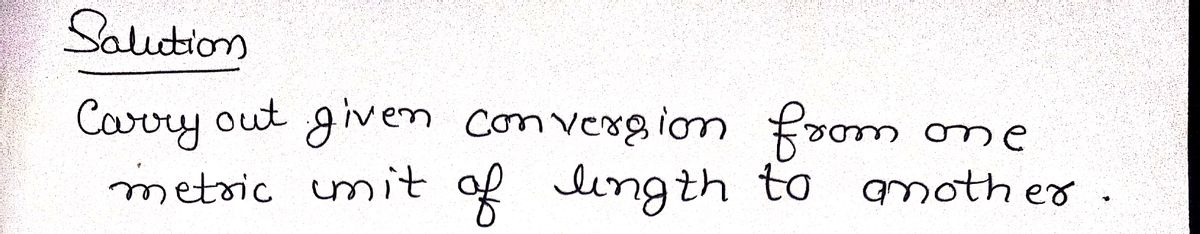 Solution
Carry out given conversion from one
metric unit of length to another.